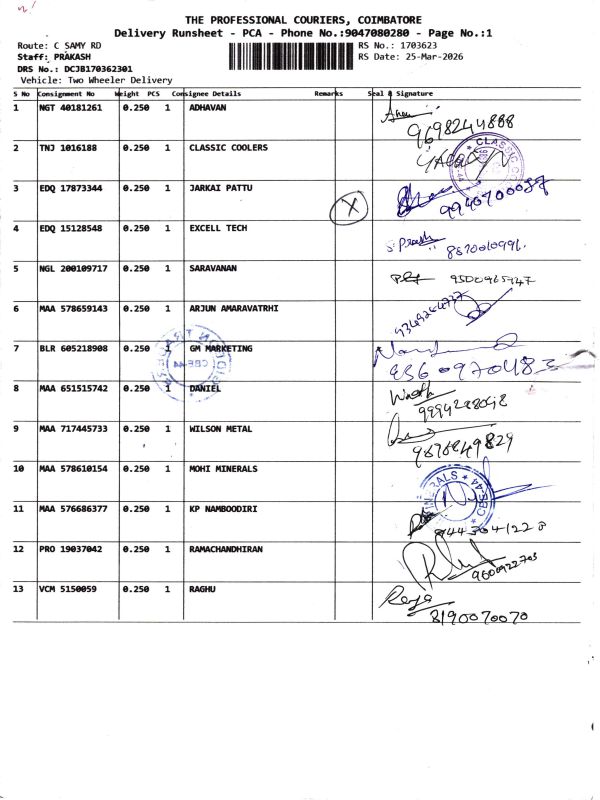 THE PROFESSIONAL COURIERS, COIMBATORE
Delivery Runsheet - PCA - Phone No.:9047080280 - Page No.:1
Route: C SAMY RD
RS No.: 1703623
Staff: PRAKASH
RS Date: 25-Mar-2026
DRS No.: DCJB170362301
Vehicle: Two Wheeler Delivery
S No Consignment No Weight PCS Consignee Details Remarks Seal & Signature
1 NGT 40181261 0.250 1 ADHAVAN
9698244888
2 TNJ 1016188 0.250 1 CLASSIC COOLERS
CLASSIC
3 EDQ 17873344 0.250 1 JARKAI PATTU X
9940700087
4 EDQ 15128548 0.250 1 EXCELL TECH
8870010996.
5 NGL 200109717 0.250 1 SARAVANAN
6 MAA 578659143 0.250 1 ARJUN AMARAVATRHI
7 BLR 605218908 0.250 1 GM MARKETING
CBE-44
8 MAA 651515742 0.250 1 DANIEL
9 MAA 717445733 0.250 1 WILSON METAL
9 MAA 578610154 0.250 1 MOHI MINERALS
CBE-44
11 MAA 576686377 0.250 1 KP NAMBOODIRI
12 PRO 19037042 0.250 1 RAMACHANDHIRAN
13 VCM 5150059 0.250 1 RAGHU
8190070070